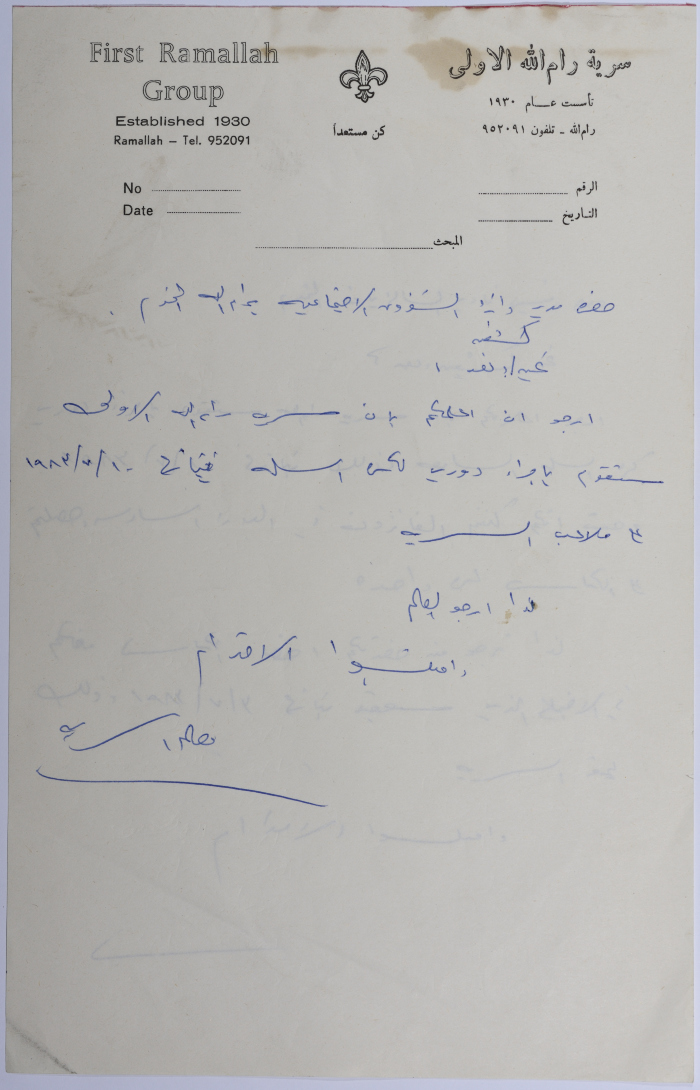 First Ramallah
Group
Established 1930
Ramallah – Tel. 952091
سرية رام الله الاولى
تأسست عـــام ١٩٣٠
رام الله ـ تلفون ٩٥٢٠٩١
كن مستعداً
No
Date
الرقم
التـاريخ
المبحث
حضرة مدير دائرة الشؤون الاجتماعية برام الله المحترم .
تحية
ارجو ان اعلمكم بان سرية رام الله الاولى
ستقوم باجراء دوري لكرة السلة بتاريخ
ملاعب السرية
لذا ارجو العلم
واقبلوا الاحترام
السرية